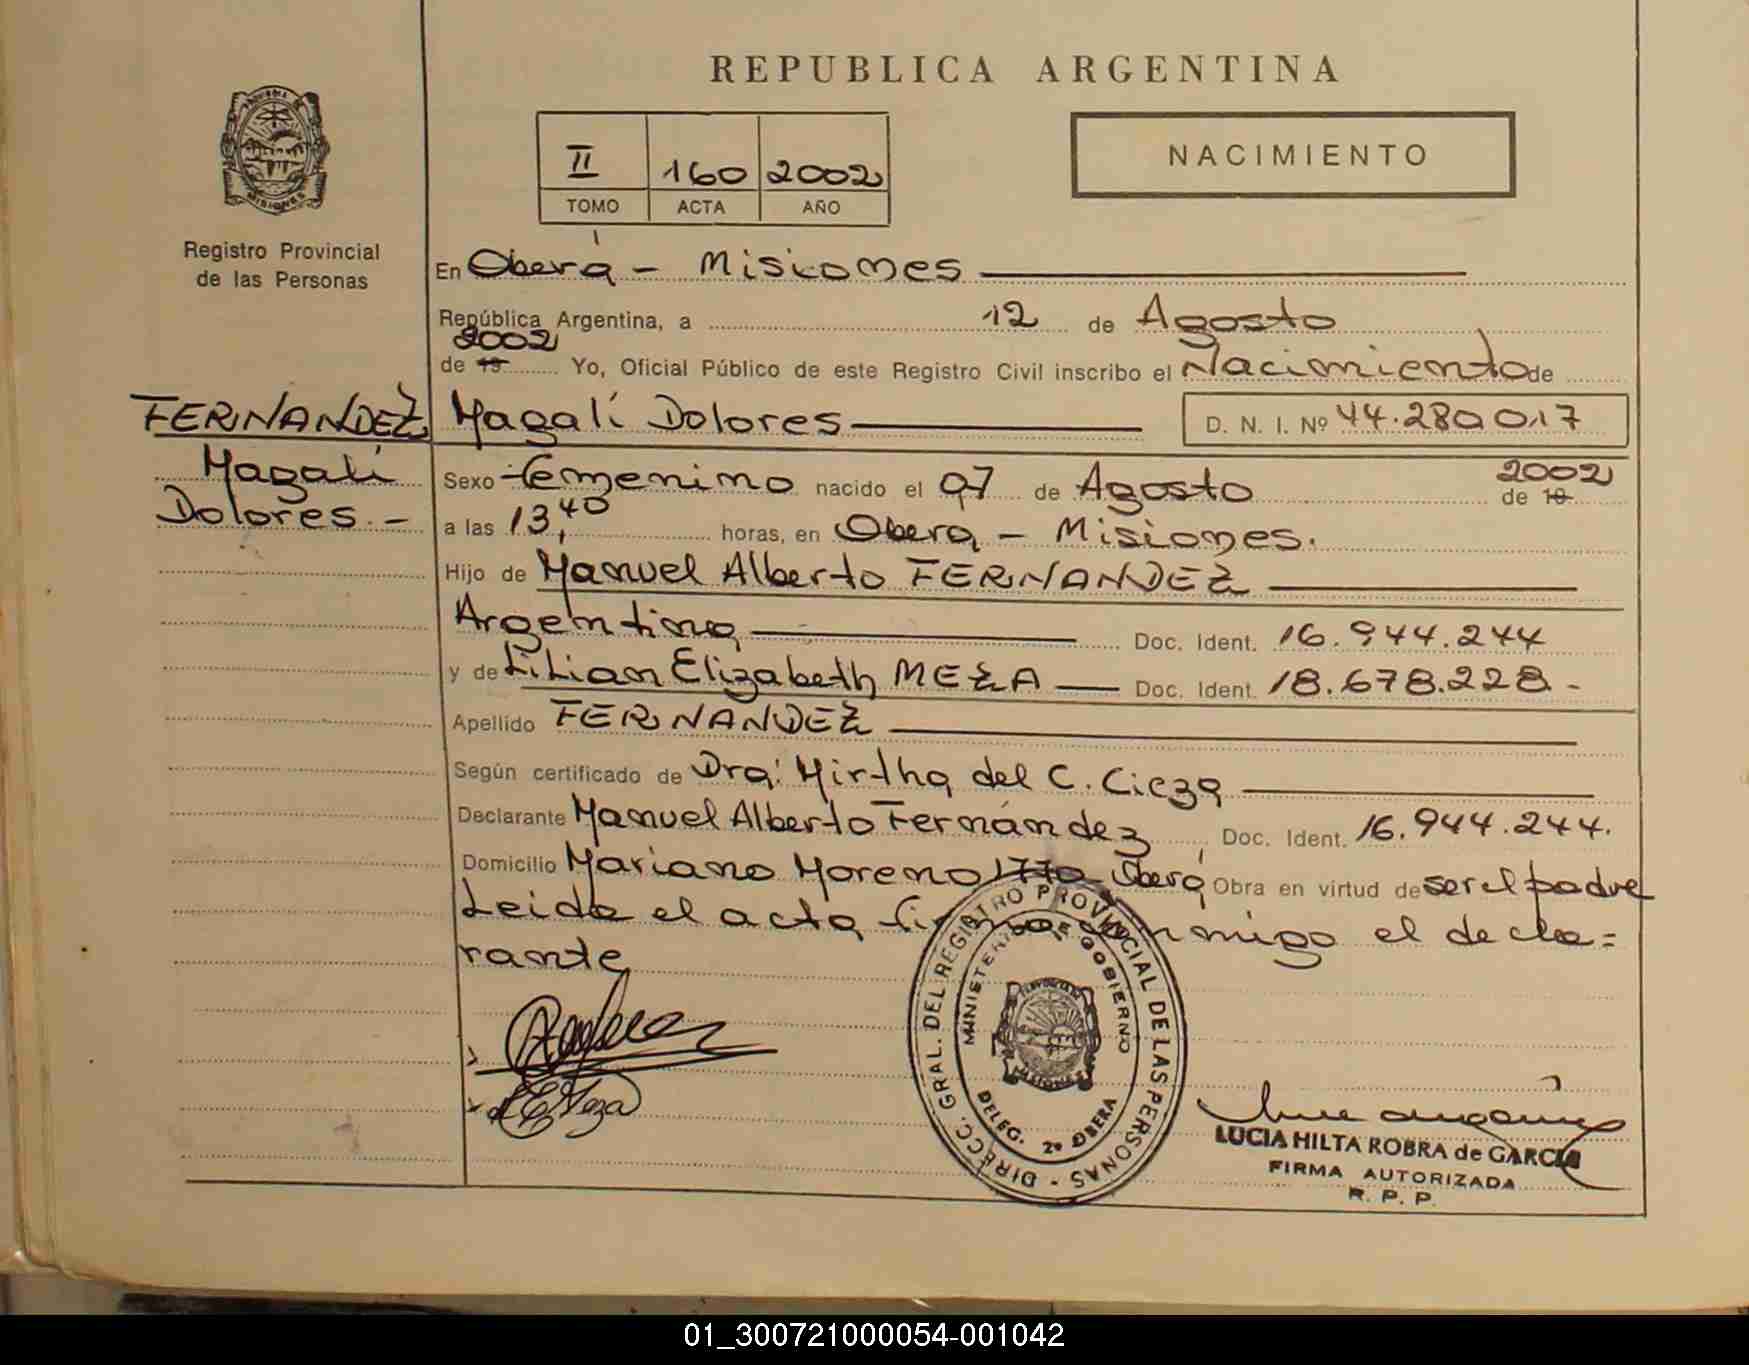 REPUBLICA ARGENTINA
PROVINCIA DE
MISIONES
Registro Provincial
de las Personas
II 160 2002
TOMO ACTA AÑO
NACIMIENTO
En Oberá - Misiones
República Argentina, a 12 de Agosto
2002
de 19 Yo, Oficial Público de este Registro Civil inscribo el Nacimiento de
FERNANDEZ
Magalí
Dolores.-
Magalí Dolores D. N. I. Nº 44.280.017
Sexo femenino nacido el 07 de Agosto de 19 2002
a las 13,40 horas, en Obera - Misiones.
Hijo de Manuel Alberto FERNANDEZ
Argentina Doc. Ident. 16.944.244
y de Lilian Elizabeth MEZA Doc. Ident. 18.678.228.-
Apellido FERNANDEZ
Según certificado de Dra: Mirtha del C. Cieza
Declarante Manuel Alberto Fernández, Doc. Ident. 16.944.244.
Domicilio Mariano Moreno 1770 Oberá Obra en virtud de ser el padre
Leida el acta firma conmigo el decla=
rante
DIRECC. GRAL. DEL REGISTRO PROVINCIAL DE LAS PERSONAS -
MINISTERIO DE GOBIERNO
DELEG. 2º OBERA
LUCIA HILTA ROBRA de GARCIA
FIRMA AUTORIZADA
R. P. P.
01_300721000054-001042